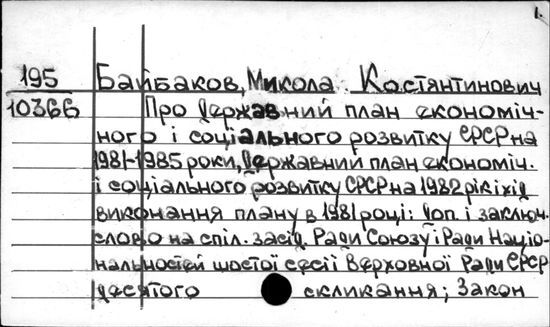 1.
195 Байбаков, Микола Костянтинович
10366 Про Державний план економіч-
ного і соціального розвитку СРСР на
1981-1985 роки, Державний план економіч.
і соціального розвитку СРСР на 1982 рік і хід
виконання плану в 1981 році: Доп. і заключ.
слово на спіл. засід. Ради Союзу і Ради Націо-
нальностей шостої сесії Верховної Ради СРСР
десятого скликання; Закон